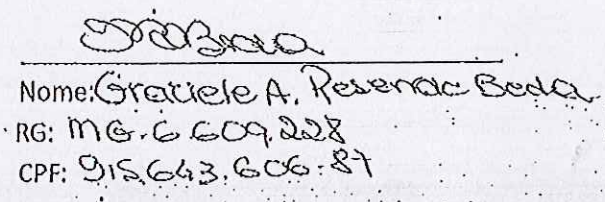 Nome: Graciele A. Resende Beda
RG: MG.6.609.228
CPF: 915.643.606-87